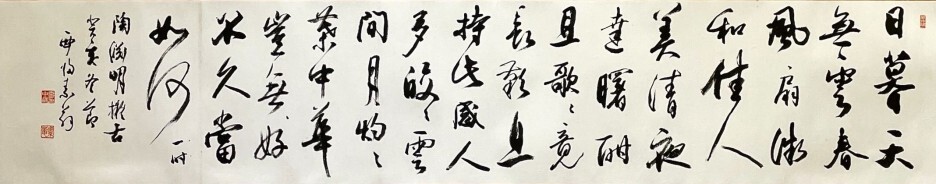 日暮天
無雲春
風扇微
和佳人
美清夜
達曙酣
且歌〻竟
長歎息
持此感人
多皎〻雲
間月灼〻
葉中華
豈無好
不久當
如何 一时
陶淵明擬古
癸亥冬節